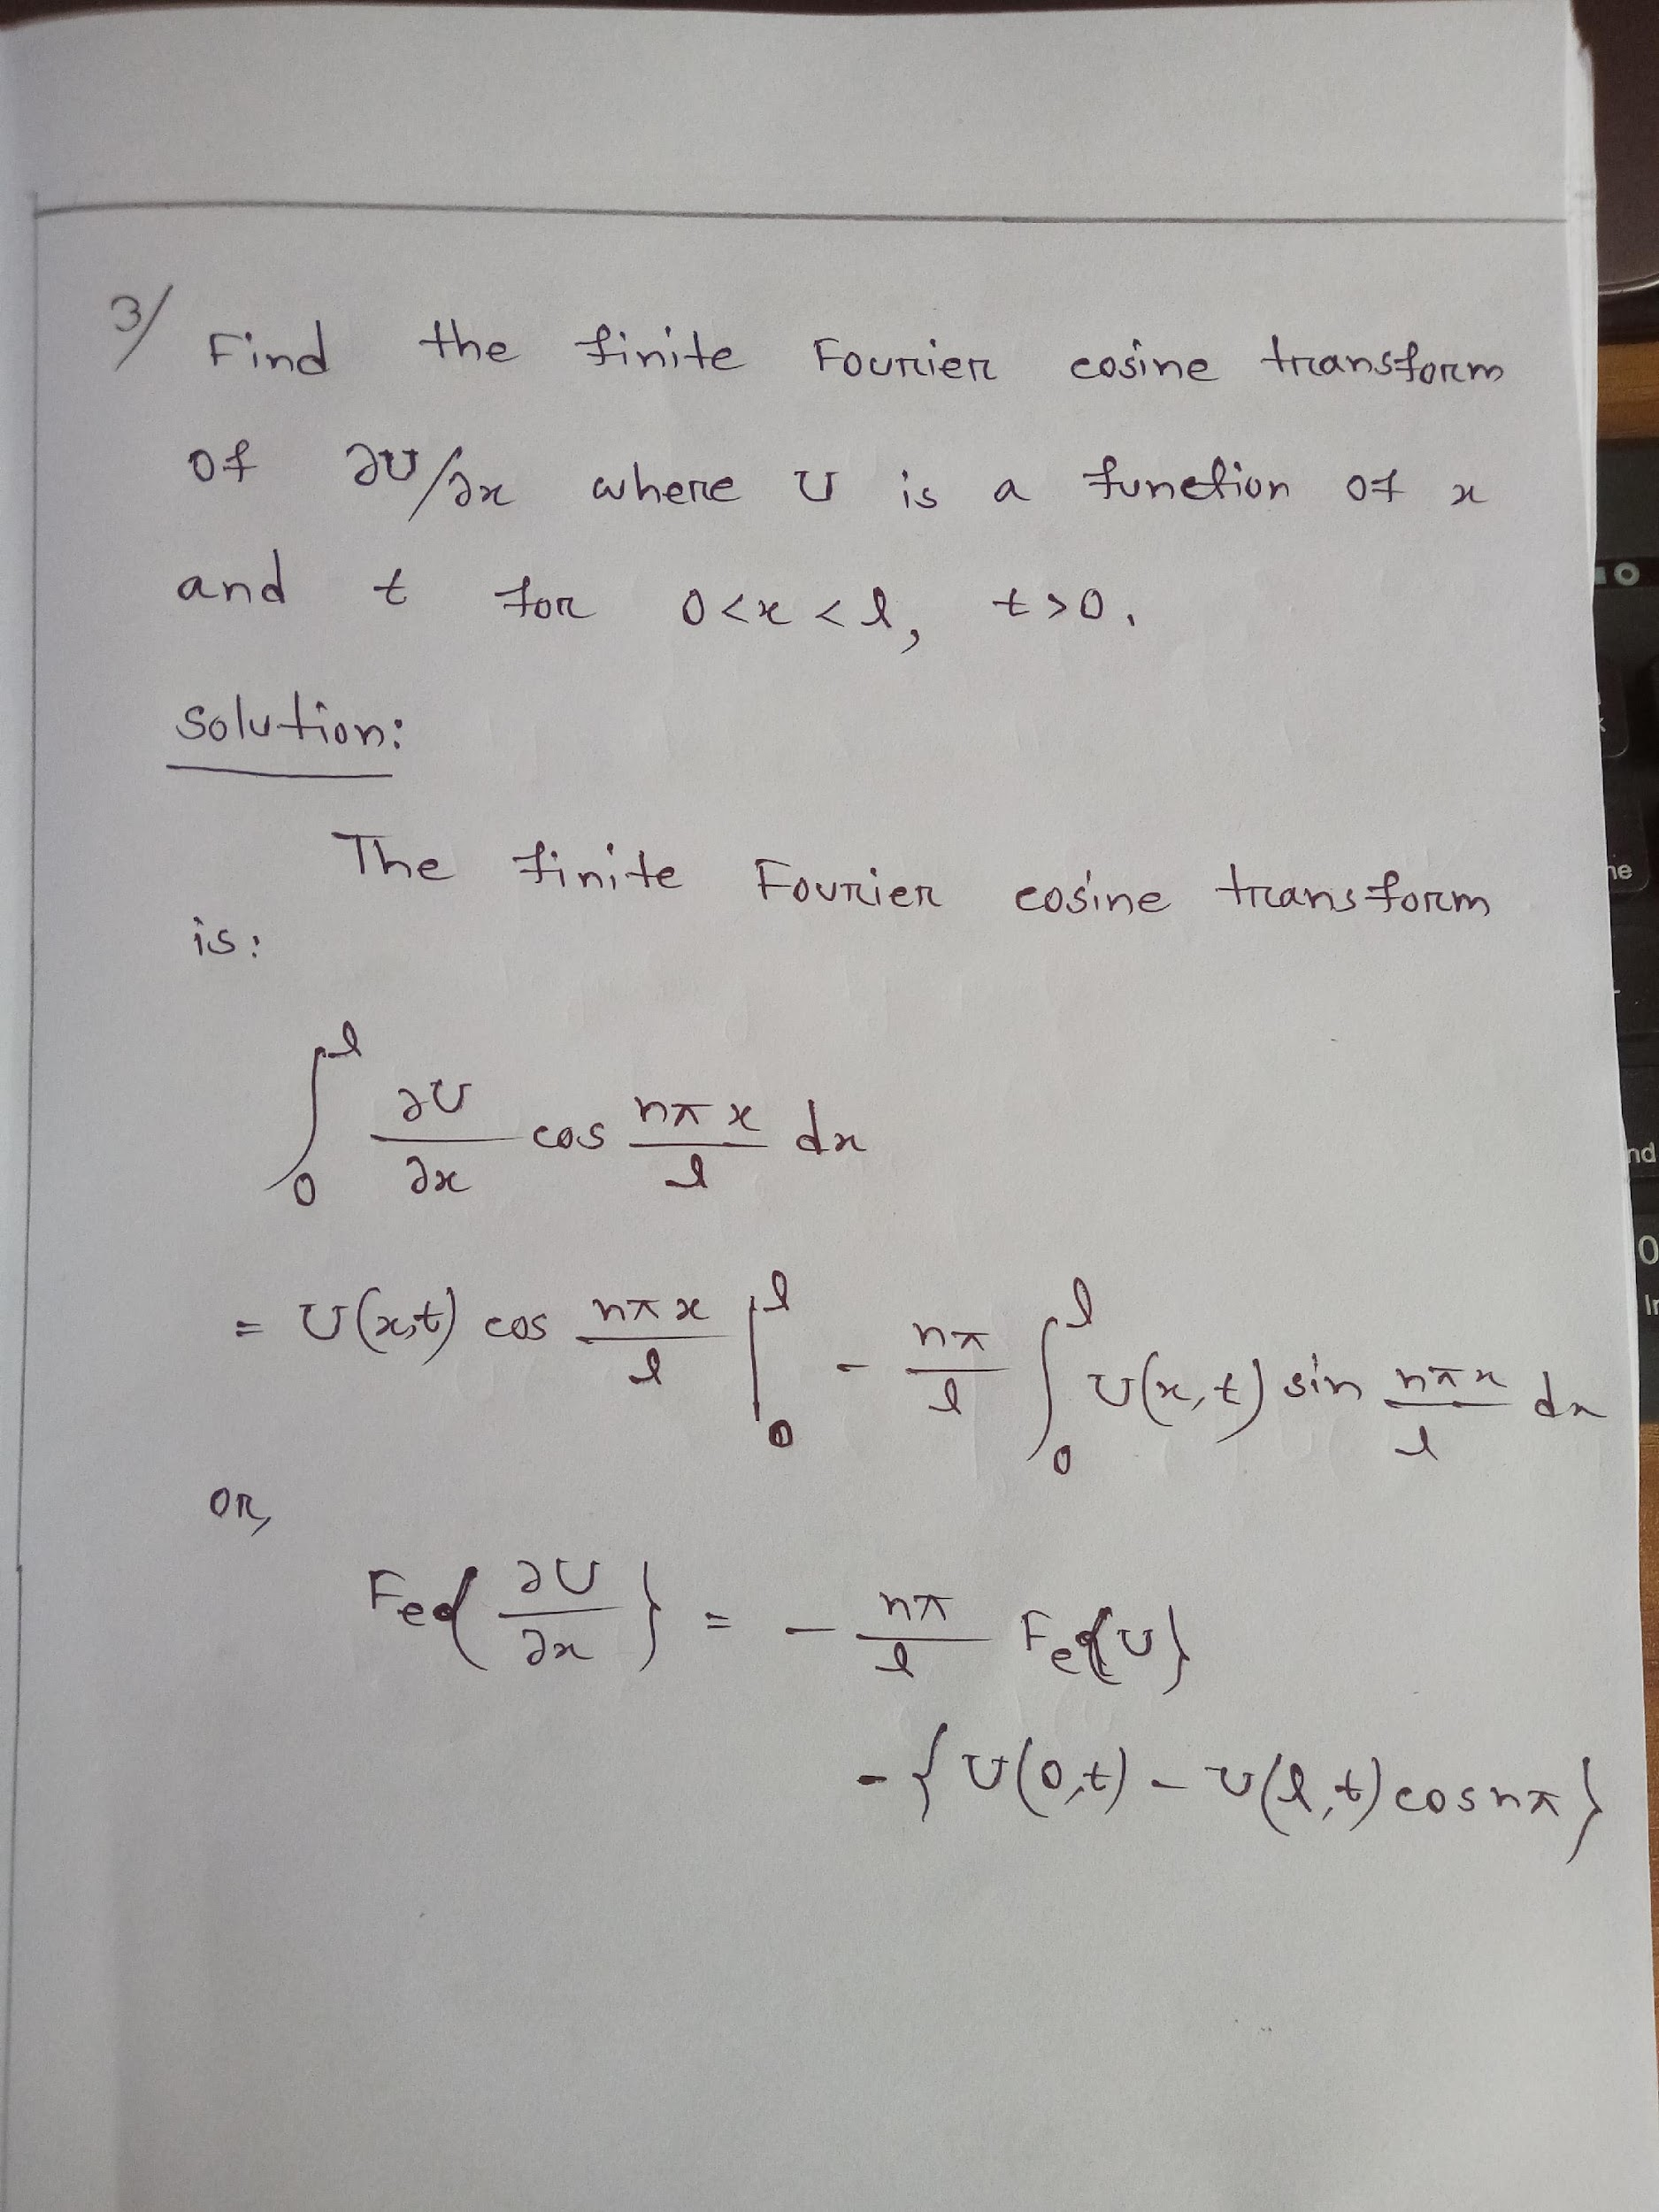 3/ Find the finite Fourier cosine transform
of ∂U/∂x where U is a function of x
and t for 0<x<l, t>0.
Solution:
The finite Fourier cosine transform
is:
∫₀ˡ ∂U/∂x cos nπx/l dx
= U(x,t) cos nπx/l |₀ˡ - nπ/l ∫₀ˡ U(x,t) sin nπx/l dx
or,
Fc{∂U/∂x} = - nπ/l Fc{U}
- {U(0,t) - U(l,t) cos nπ}